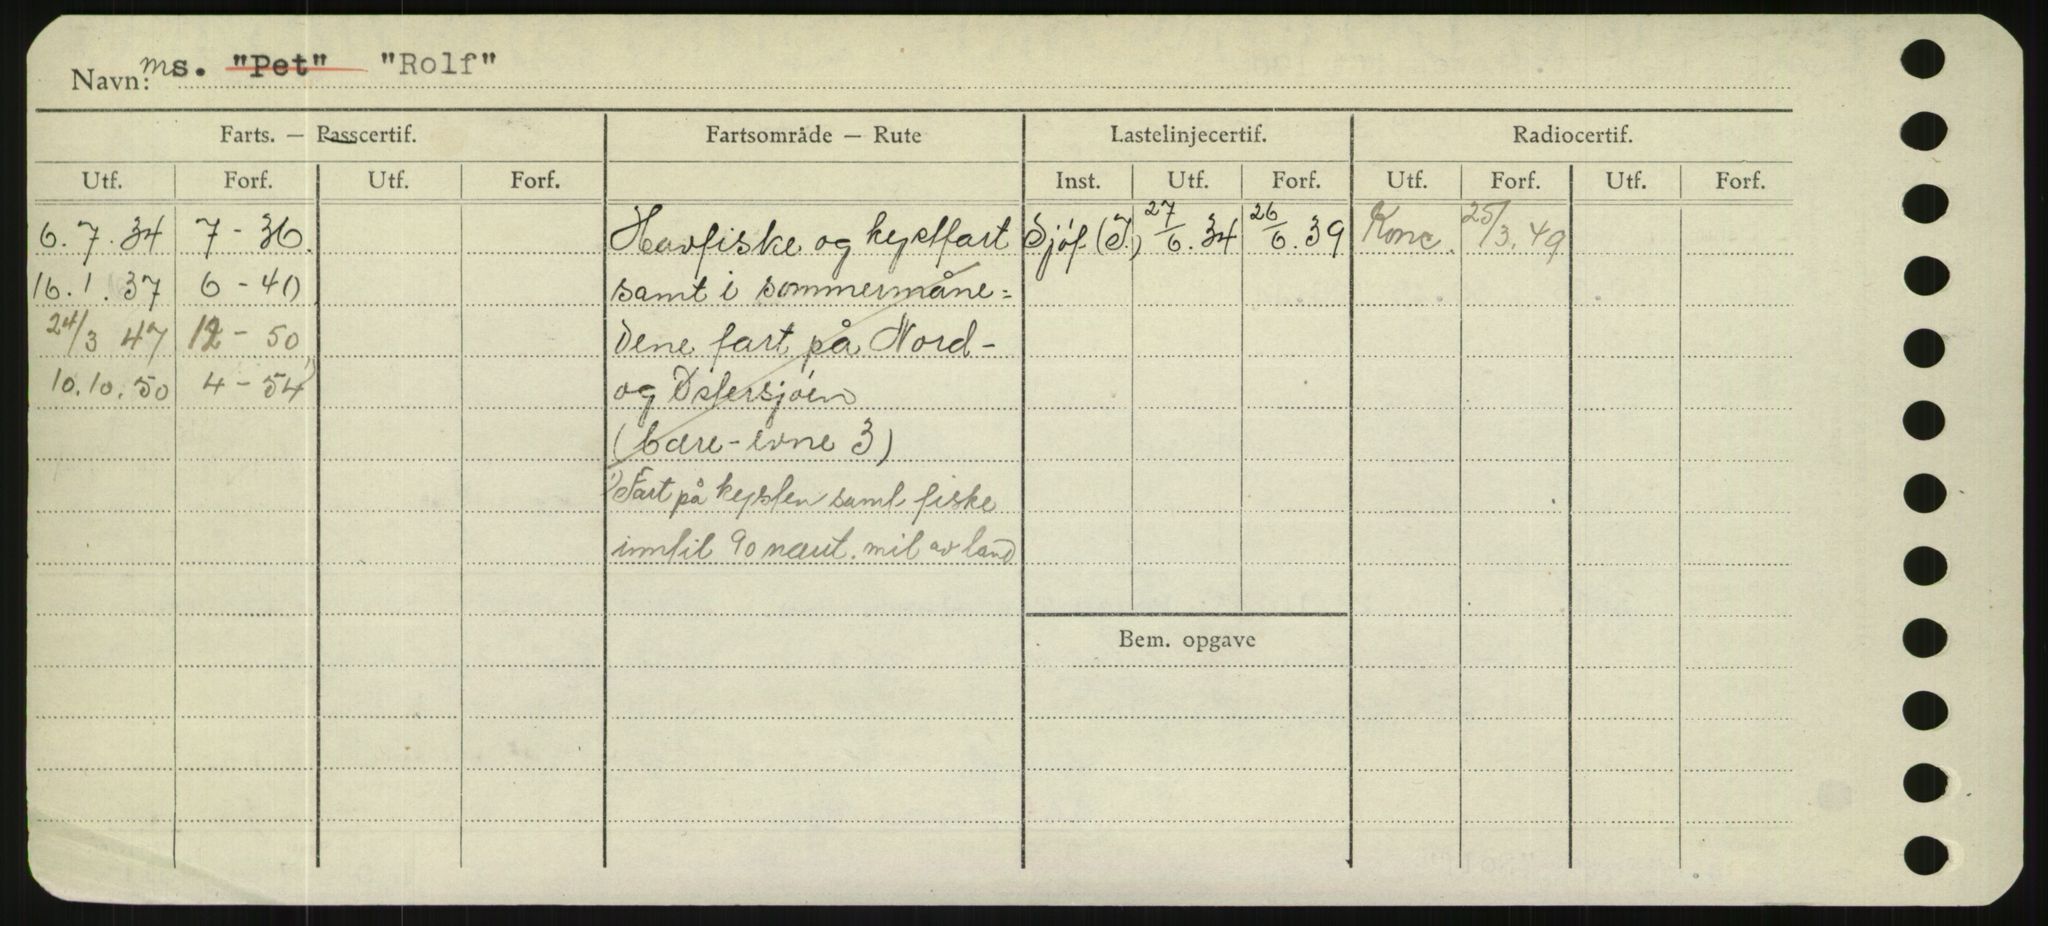 Navn: ms. "Pet" "Rolf"
Farts. — Passcertif. Fartsområde — Rute Lastelinjecertif. Radiocertif.
Utf. Forf. Utf. Forf. Inst. Utf. Forf. Utf. Forf. Utf. Forf.
6.7.34 7-36. Havfiske og kystfart Sjöf. (I.) 27/6.34 26/6.39 Konc. 25/3.49
16.1.37 6-40 samt i sommermåne=
24/3 47 12-50 dene fart på Nord-
10.10.50 4-54 1) og Østersjöen
(bære-evne 3)
1) Fart på kysten samt fiske
inntil 90 naut. mil av land
Bem. opgave